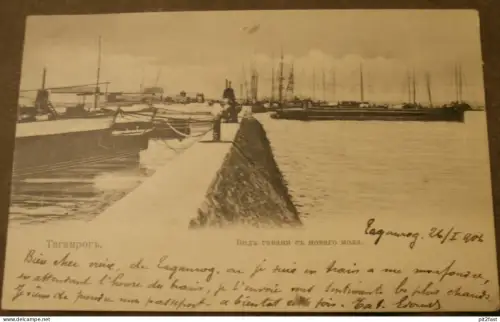 Таганрогъ.
Видъ гавани съ новаго мола.
Taganrog 26/I 1902
Bien cher
de Taganrog, où je suis en train à me morfondre,
en attendant l'heure du train, je t'envoie mes
les plus chauds.
Je viens de prendre mon passeport - à bientôt
pit2fast